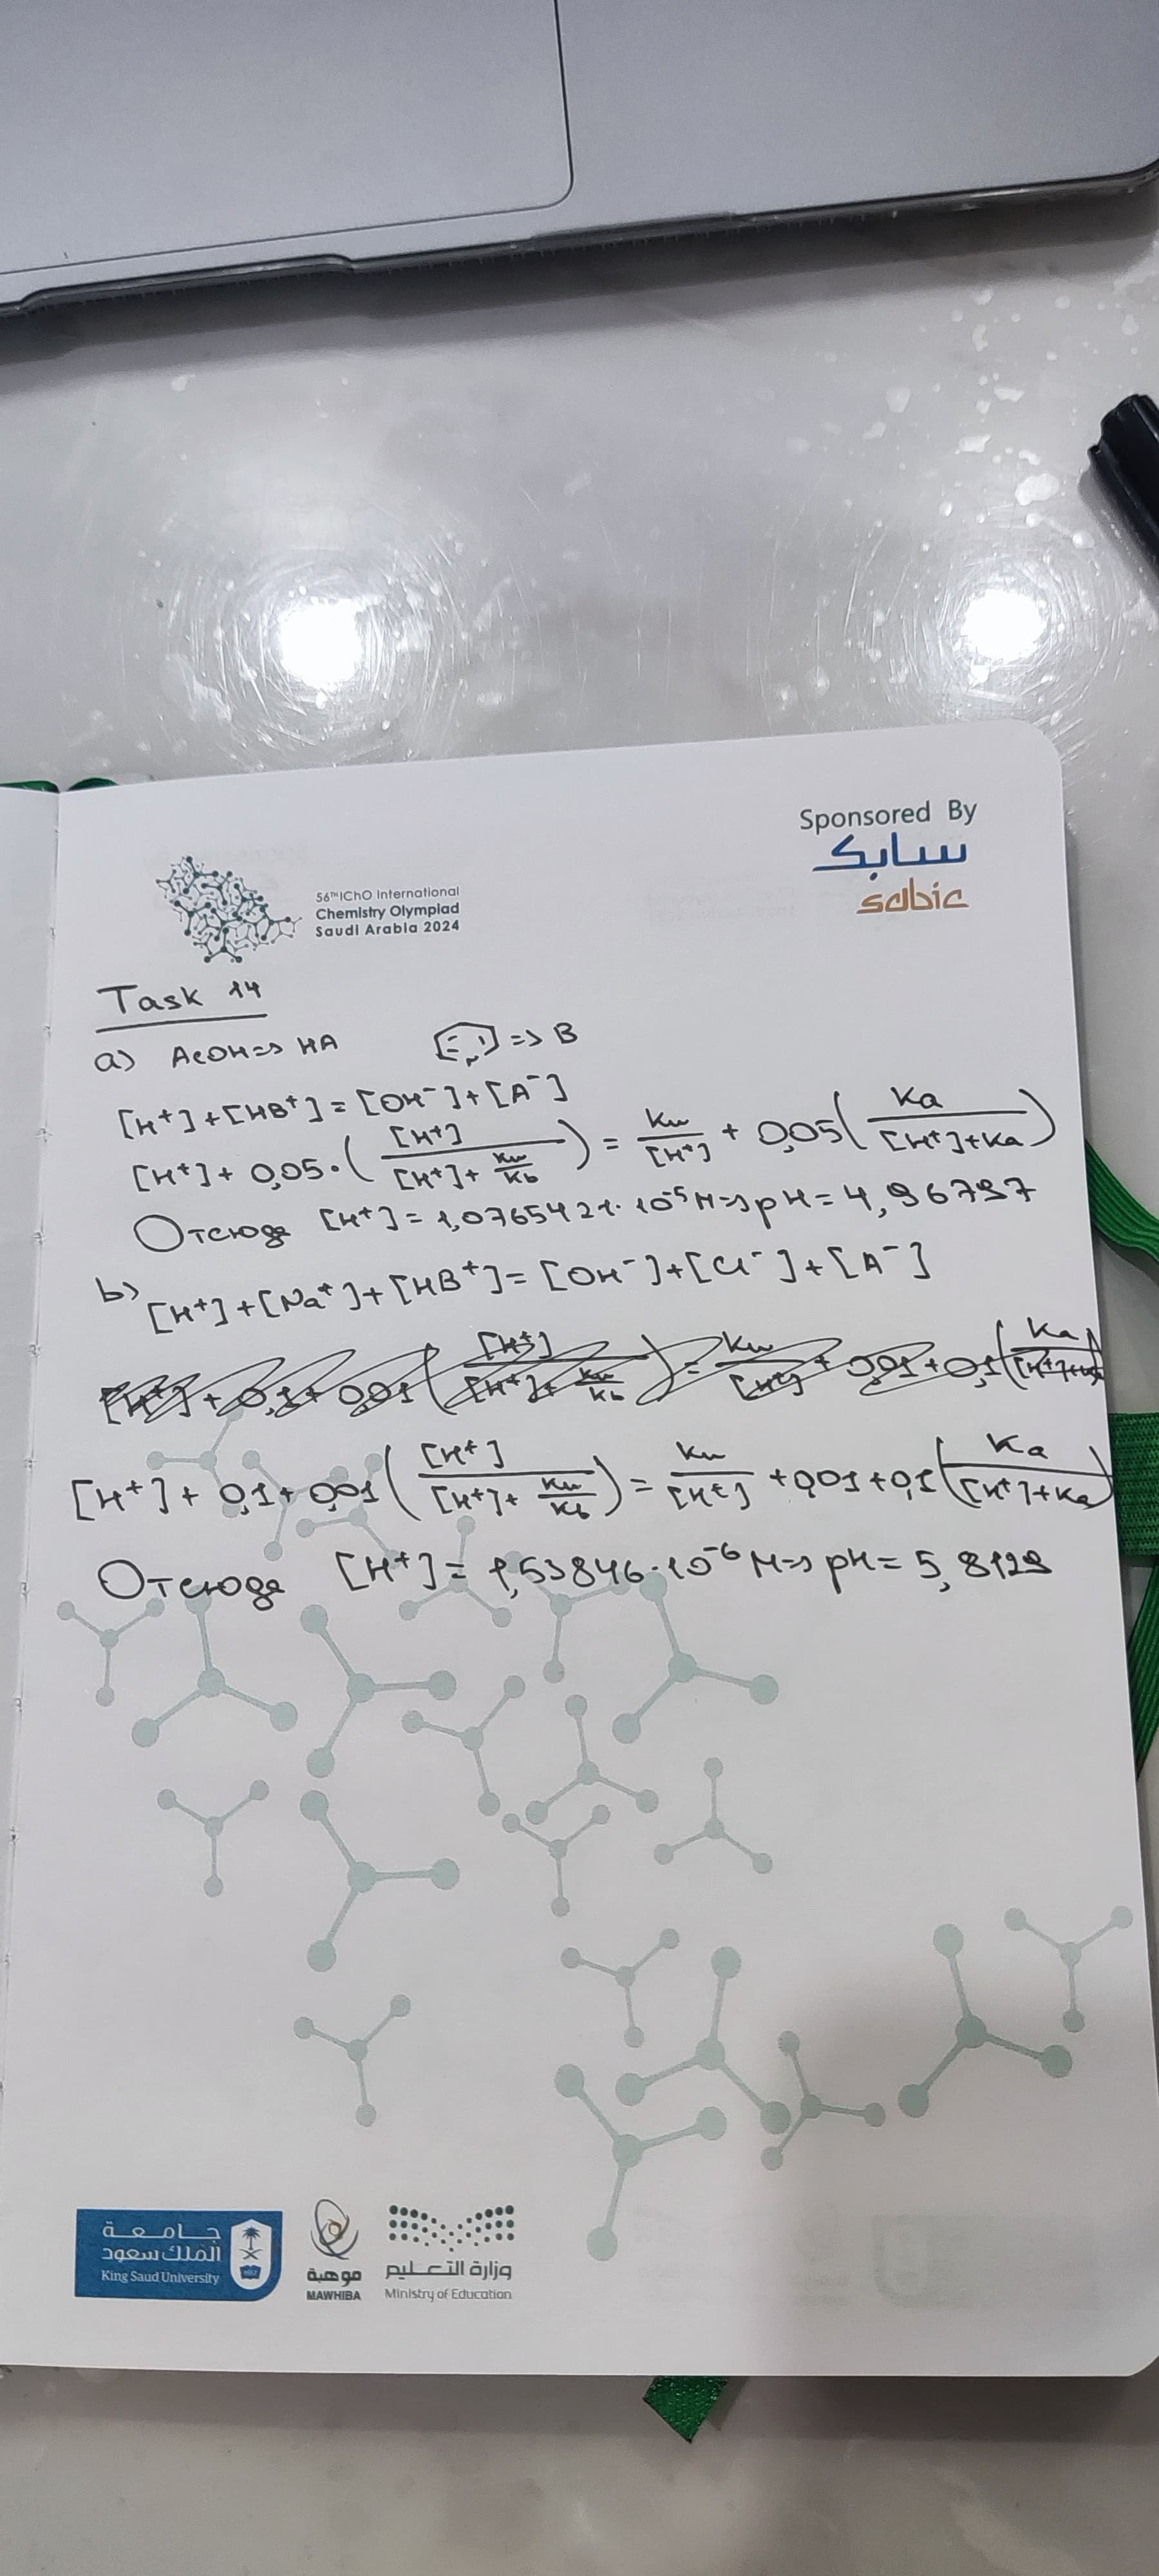 Sponsored By
سابك
sabic
56TH IChO International
Chemistry Olympiad
Saudi Arabia 2024
Task 14
a) AcOH => HA => B
[H⁺]+[HB⁺]=[OH⁻]+[A⁻]
[H⁺]+ 0,05·([H⁺]/([H⁺]+Kw/Kb)) = Kw/[H⁺] + 0,05(Ka/([H⁺]+Ka))
Отсюда [H⁺]=1,0765421·10⁻⁵M=>pH=4,96797
b) [H⁺]+[Na⁺]+[HB⁺]=[OH⁻]+[Cl⁻]+[A⁻]
[H⁺]+ 0,1+ 0,01([H⁺]/([H⁺]+Kw/Kb))=Kw/[H⁺]+0,01+0,1(Ka/([H⁺]+Ka))
Отсюда [H⁺]=1,53846·10⁻⁶M=>pH=5,8129
جامعة
الملك سعود
King Saud University
موهبة
MAWHIBA
وزارة التعليم
Ministry of Education